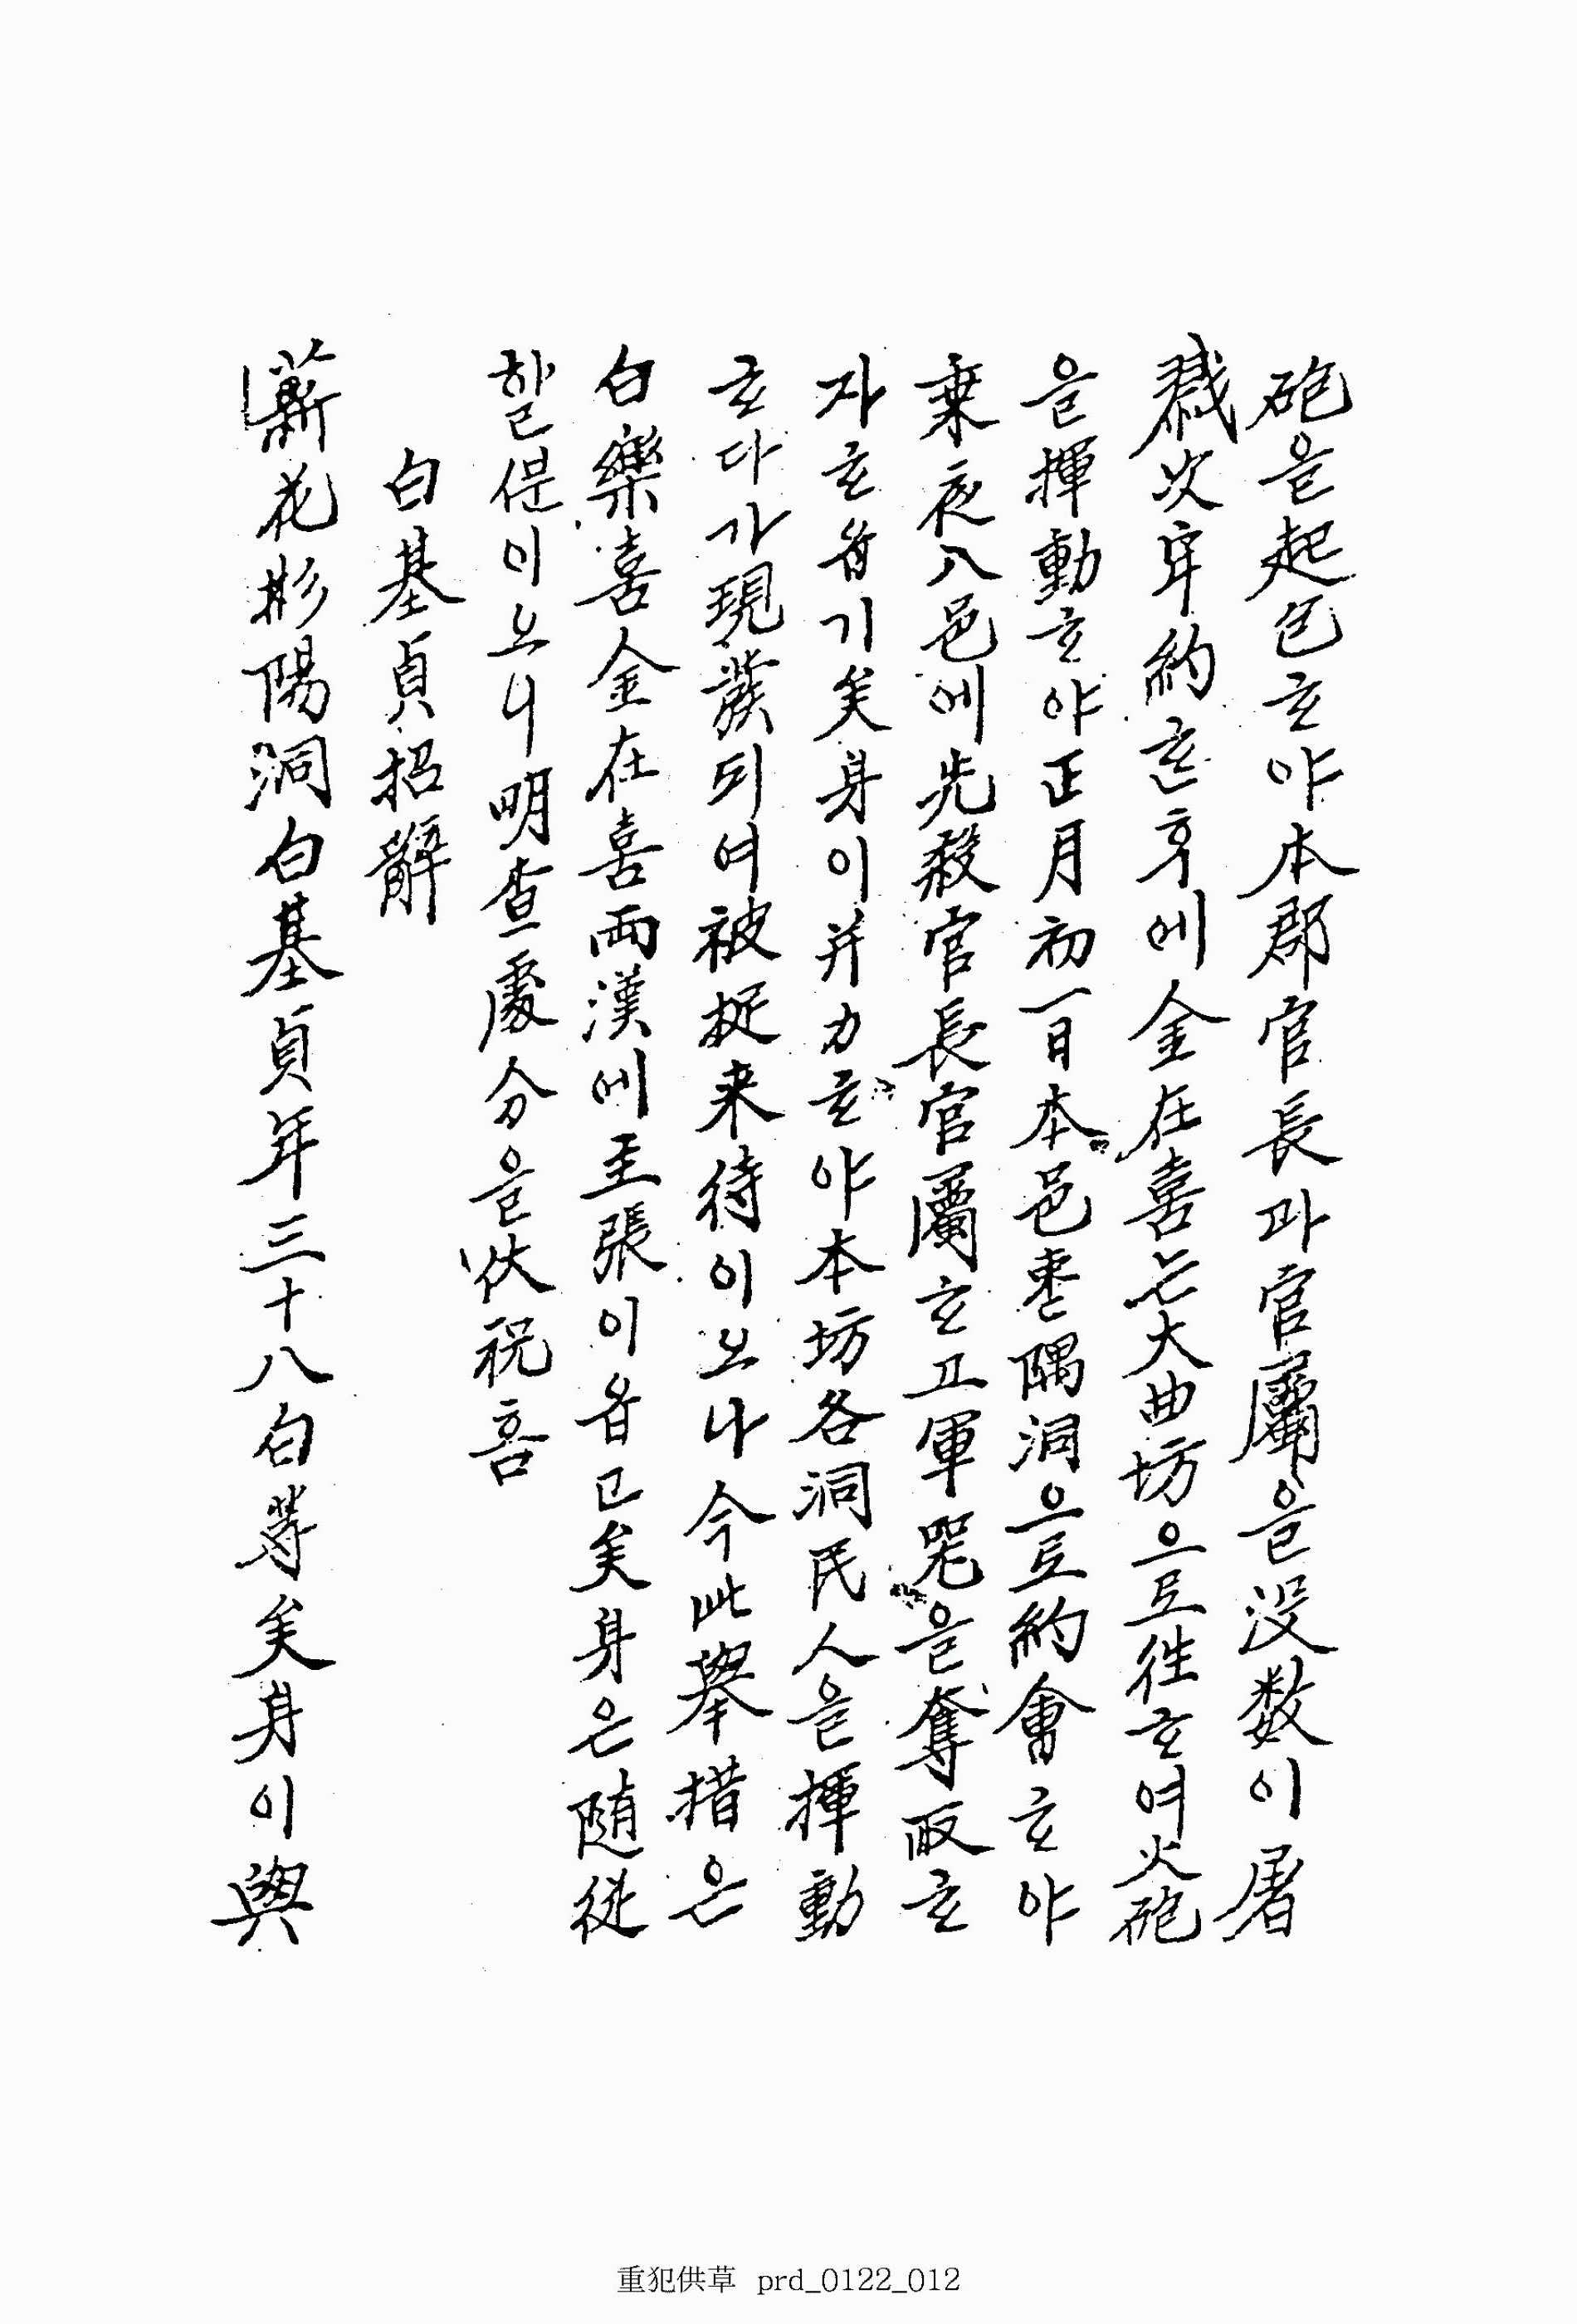 砲을起包ᄒᆞ야本郡官長과官屬을沒数이屠
戮次牢約ᄒᆞᆫ후에金在喜는大曲坊으로徃ᄒᆞ여火砲
을揮動ᄒᆞ야正月初一日本邑棗隅洞으로約會ᄒᆞ야
乗夜入邑에先殺官長官屬ᄒᆞ고軍器을奪取ᄒᆞ
자ᄒᆞ옵기矣身이并力ᄒᆞ야本坊各洞民人을揮動
ᄒᆞ다가現發되여被捉来待이오나今此擧措은
白樂喜金在喜両漢에主張이옵고矣身은随從
할ᄲᅮᆫ이오니明查處分을伏祝홈
白基貞招辭
薪花彬陽洞白基貞年三十八白等矣身이與
重犯供草 prd_0122_012